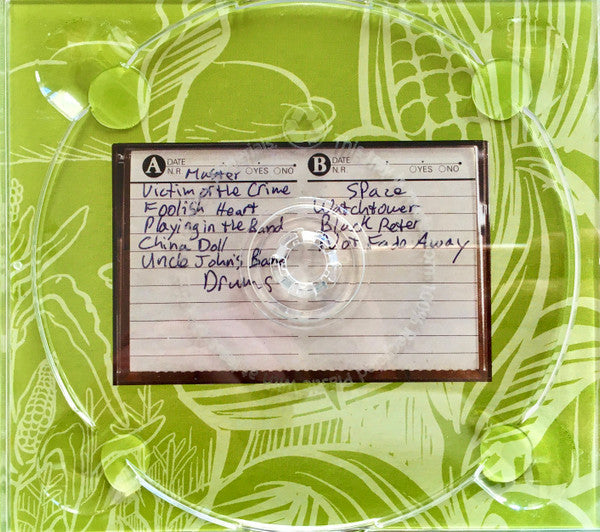 A DATE
N.R. Master OYES ONO
Victim of the Crime
Foolish Heart
Playing in the Band
China Doll
Uncle John's Band
Drums
B DATE
N.R. OYES ONO
Space
Watchtower
Black Peter
Not Fade Away